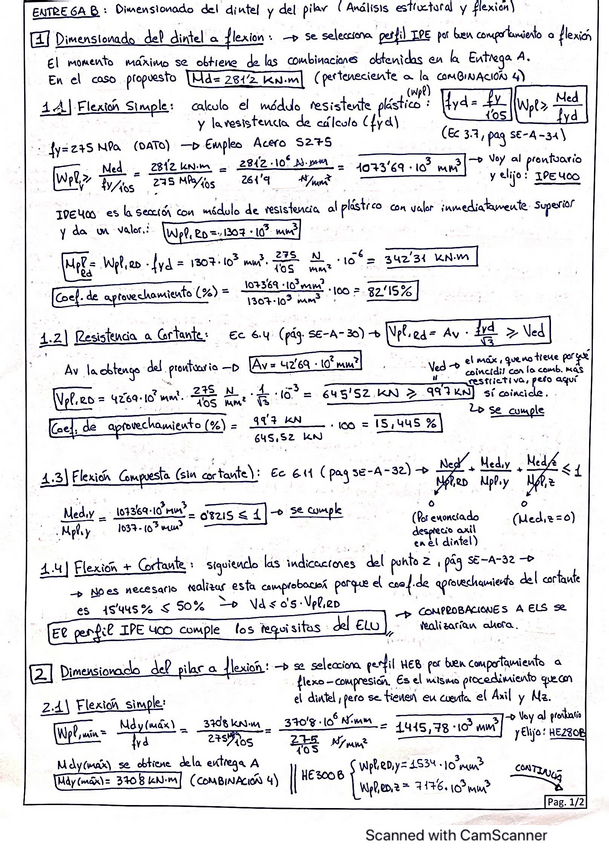 ENTREGA B: Dimensionado del dintel y del pilar (Análisis estructural y flexión)
1 Dimensionado del dintel a flexion: → se selecciona perfil IPE por ben comportamiento a flexión
El momento máximo se obtiene de las combinaciones obtenidas en la Entrega A.
En el caso propuesto Md = 281'2 KN·m (perteneciente a la COMBINACIÓN 4)
1.1 Flexión Simple: calculo el módulo resistente plástico (Wpl):
y la resistencia de cálculo (fyd)
fyd = fy/1'05 Wpl ≥ Med/fyd
(Ec 3.7, pag SE-A-31)
fy = 275 MPa (DATO) → Empleo Acero S275
Wpl,y ≥ Med/(fy/1'05) = 281'2 KN·m/(275 MPa/1'05) = 281'2·10⁶ N·mm/(261'9 N/mm²) = 1073'69·10³ mm³ → Voy al prontuario
y elijo: IPE 400
IPE 400 es la sección con módulo de resistencia al plástico con valor inmediatamente superior
y da un valor.: Wpl,RD = 1307·10³ mm³
Mpl,Rd = Wpl,RD · fyd = 1307·10³ mm³ · 275/1'05 N/mm² · 10⁻⁶ = 342'31 KN·m
Coef. de aprovechamiento (%) = 1073'69·10³ mm³/1307·10³ mm³ · 100 = 82'15%
1.2 Resistencia a Cortante: Ec 6.4 (pág. SE-A-30) → Vpl,Rd = Av · fyd/√3 ≥ Ved
Av la obtengo del prontuario → Av = 42'69·10² mm²
Ved → el máx, que no tiene por qué
coincidir con la comb. más
restrictiva, pero aquí
sí coincide.
Vpl,RD = 42'69·10² mm² · 275/1'05 N/mm² · 1/√3 · 10⁻³ = 645'52 KN ≥ 99'7 KN
↳ se cumple
Coef. de aprovechamiento (%) = 99'7 KN/645,52 KN · 100 = 15,445%
1.3 Flexión Compuesta (sin cortante): Ec 6.11 (pag SE-A-32) → Ned/Npl,RD + Med,y/Mpl,y + Med,z/Mpl,z ≤ 1
Med,y/Mpl,y = 1073'69·10³ mm³/1037·10³ mm³ = 0'8215 ≤ 1 → se cumple
0 0
(Por enunciado
desprecio axil
en el dintel)
(Med,z=0)
1.4 Flexión + Cortante: siguiendo las indicaciones del punto 2, pág SE-A-32 →
→ No es necesario realizar esta comprobación porque el coef. de aprovechamiento del cortante
es 15'445% ≤ 50% → Vd ≤ 0'5·Vpl,RD
El perfil IPE 400 cumple los requisitos del ELU
→ COMPROBACIONES A ELS se
realizarían ahora.
2 Dimensionado del pilar a flexión: → se selecciona perfil HEB por ben comportamiento a
flexo-compresión. Es el mismo procedimiento que con
el dintel, pero se tienen en cuenta el Axil y Mz.
2.1 Flexión simple:
Wpl,min = Mdy(máx)/fyd = 370'8 KN·m/(275/1'05) = 370'8·10⁶ N·mm/(275/1'05 N/mm²) = 1415,78·10³ mm³ → Voy al prontuario
y Elijo: HE280B
Mdy(máx) se obtiene de la entrega A
Mdy(máx) = 370'8 KN·m (COMBINACIÓN 4)
HE300B { Wpl,RD,y = 1534·10³ mm³
Wpl,RD,z = 717'6·10³ mm³
CONTINÚA
Pag. 1/2
Scanned with CamScanner